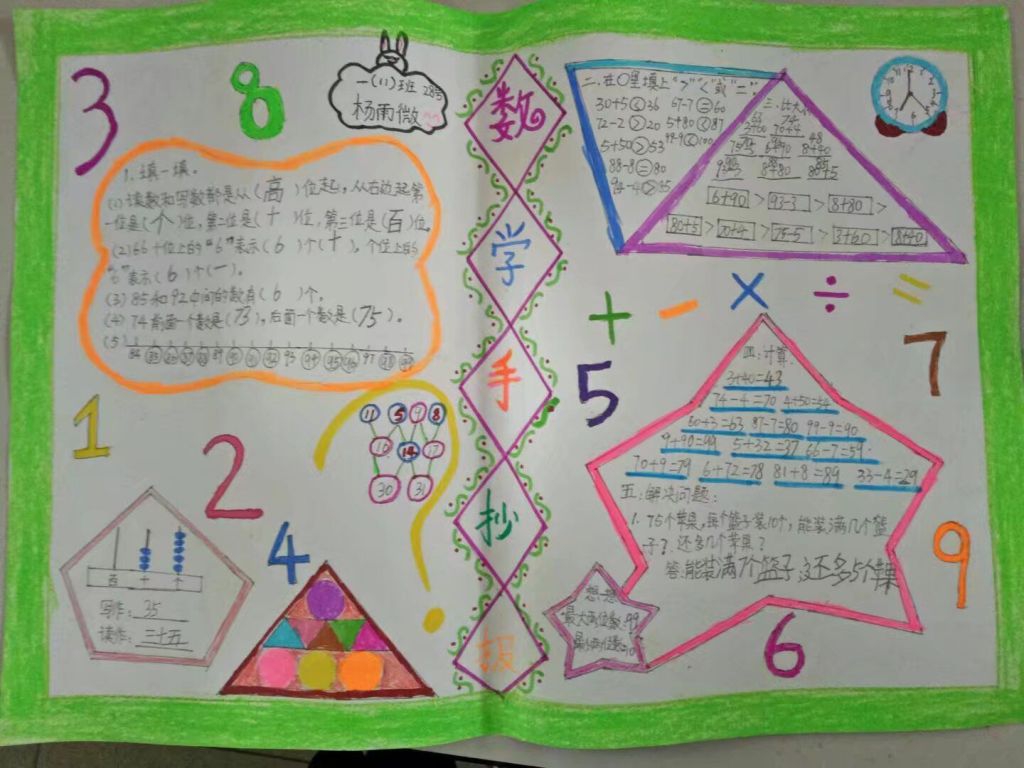 3
8
一(11)班 28号
杨雨微
数
学
手
抄
报
1、填一填。
(1) 读数和写数都是从(高)位起，从右边起第
一位是(个)位，第二位是(十)位，第三位是(百)位。
(2) 66十位上的“6”表示(6)个(十)，个位上的
“6”表示(6)个(一)。
(3) 85和92中间的数有(6)个。
(4) 74前面一个数是(73)，后面一个数是(75)。
(5)
84 85 86 87 88 89 90 91 92 93 94 95 96 97 98 99
1
2
11 5 9 8
16 14 17
30 31
?
4
百 十 个
写作: 35
读作: 三十五
二、在○里填上“>”“<”或“=”。
30+5<36 67-7=60
72-2>20 5+80<87
5+50>53 99-9<100
88-8=80
94-40>35
三、比大小
63 74
3+60 70+4 48
75-5 6+90 8+40
8+80 80+5
6+90 > 93-3 > 8+80 >
80+5 > 70+4 > 75-5 > 3+60 > 8+40
+ - × ÷ =
5
7
四:计算
3+40=43
74-4=70 4+50=54
60+3=63 87-7=80 99-9=90
9+90=99 5+32=37 66-7=59
70+9=79 6+72=78 81+8=89 33-4=29
五:解决问题:
1. 75个苹果，每个篮子装10个，能装满几个篮
子？还多几个苹果？
答:能装满7个篮子，还多5个苹果
想一想
最大两位数:99
最小两位数:10
9
6